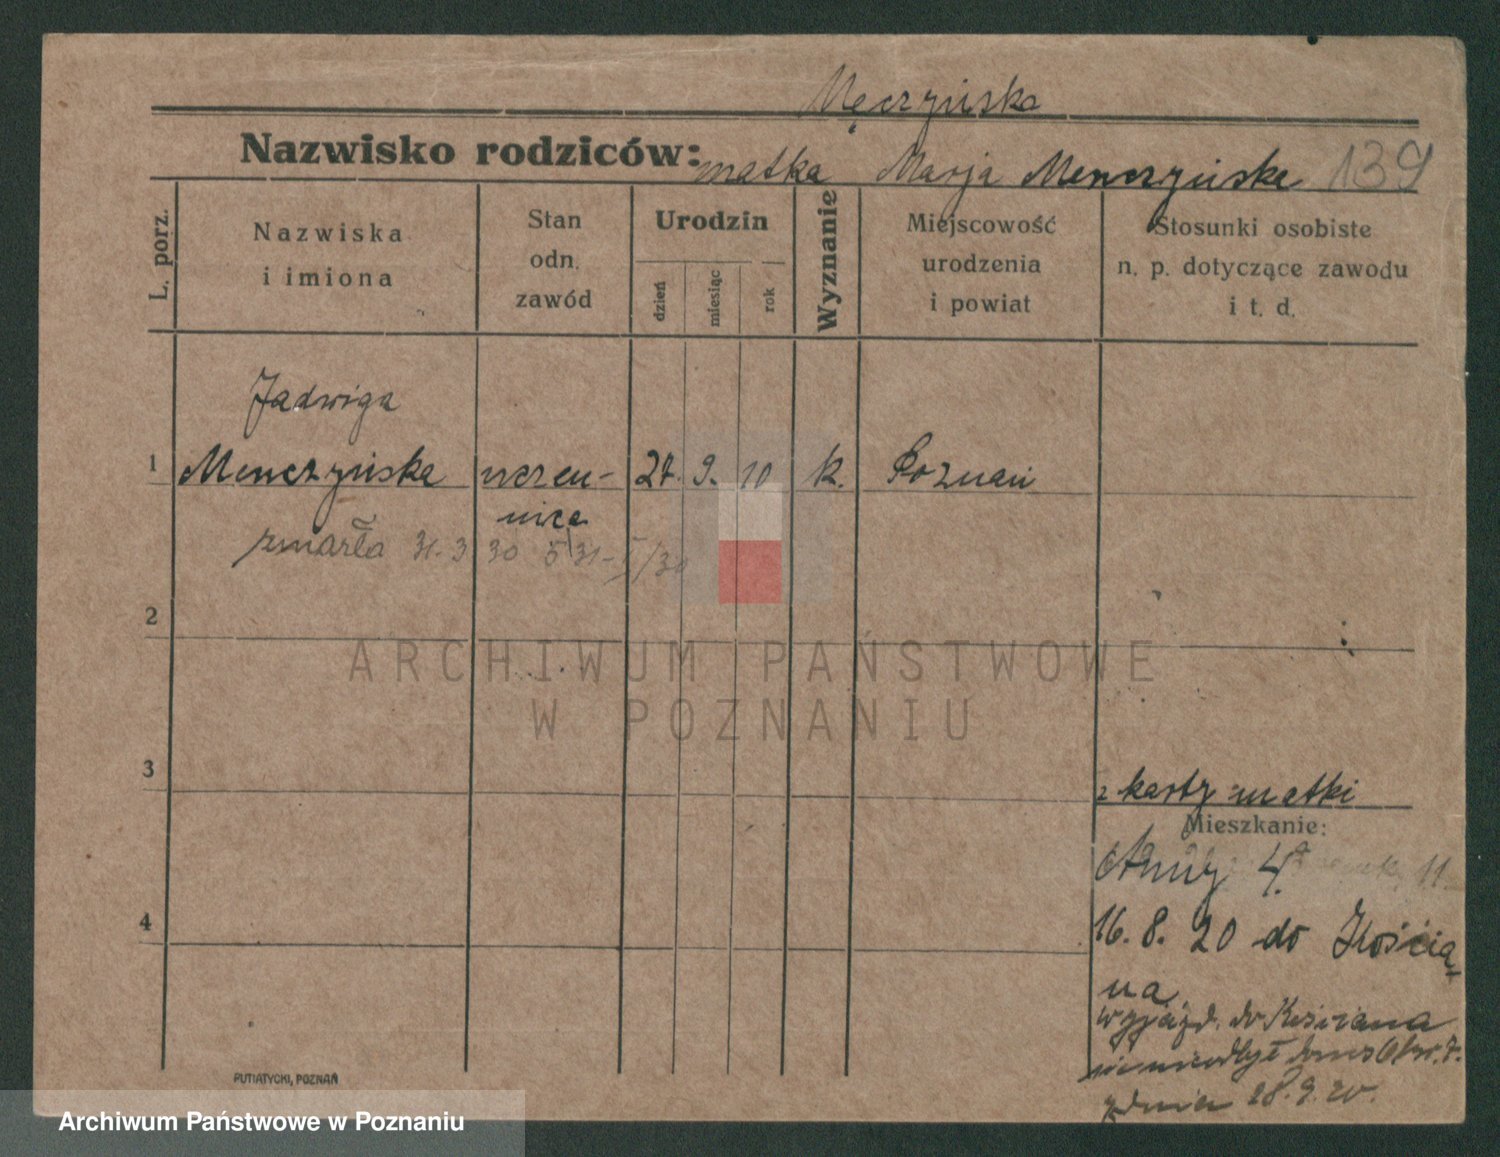 Męczyńska
Nazwisko rodziców: matka Marja Menczyńska 139
L. porz.
Nazwiska
i imiona
Stan
odn.
zawód
Urodzin
dzień
miesiąc
rok
Wyznanie
Miejscowość
urodzenia
i powiat
Stosunki osobiste
n. p. dotyczące zawodu
i t. d.
Jadwiga
1 Menczyńska uczen- 27. 9. 10 k. Poznań
nica
zmarła 31-3 30
2
ARCHIWUM PAŃSTWOWE
W POZNANIU
3
z karty matki
Mieszkanie:
4.
16. 8. 20 do Kościa-
na
4
wyjazd. do Kościana
z dnia 28.9.20.
PUTIATYCKI, POZNAŃ
Archiwum Państwowe w Poznaniu